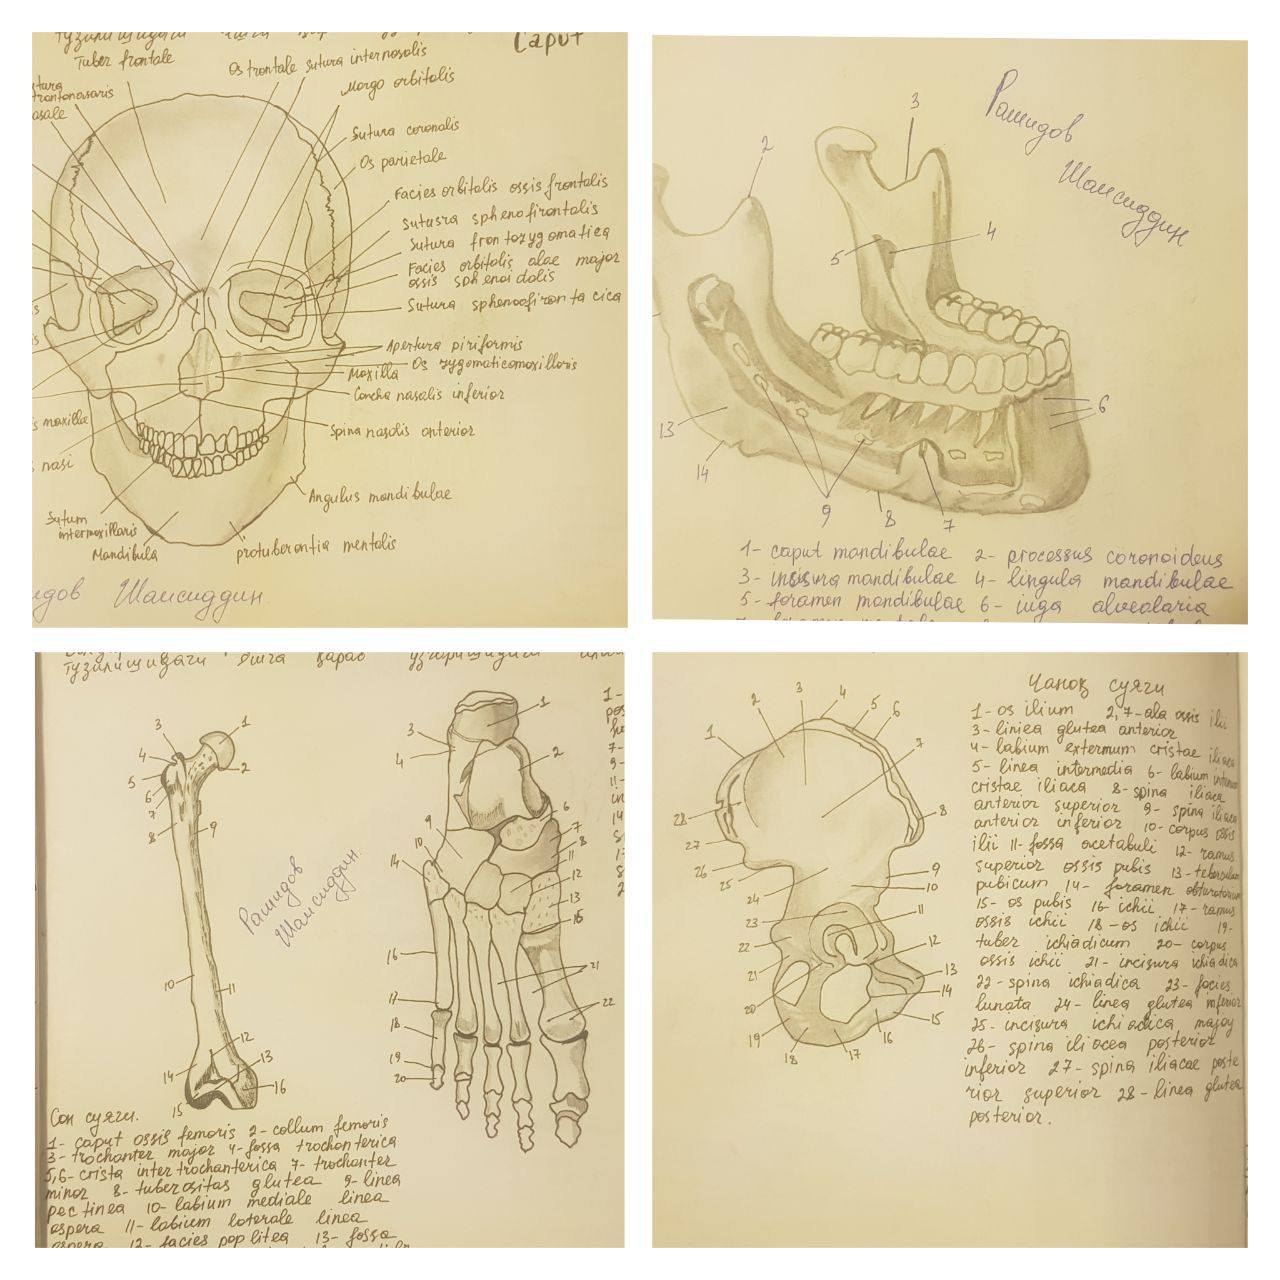 Caput
Tuber frontale
Os frontale sutura internosalis
Morgo orbitalis
Sutura coronalis
Os parietale
Facies orbitalis ossis frontalis
Sutusra sphenofirontalis
Sutura frontozygomatica
Facies orbitalis alae major
ossis sphenoidalis
Apertura piriformis
Os zygomaticomoxilloris
Moxilla
Concha nasalis inferior
Spina nasolis anterior
s nasi
Angulus mandibulae
intermoxillaris
Mandibula
protuberontia mentalis
Шамсиддин
Рашидов
Шамсиддин
2
3
4
5
6
7
8
9
13
14
1- caput mandibulae 2- processus coronoideus
3- incisura mandibulae 4- lingula mandibulae
5- foramen mandibulae 6- iuga alveolaria
тузилишидаги ёшга қараб
Рашидов
Шамсиддин
1
2
3
4
5
6
7
8
9
10
11
12
13
14
15
16
1
2
3
4
6
7
8
9
10
11
12
13
14
15
16
17
18
19
20
21
22
Сон суяги.
1- caput ossis femoris 2- collum femoris
3- trochanter major 4- fossa trochonterica
5,6- crista intertrochanterica 7- trochanter
minor 8- tuberositas glutea 9- linea
pectinea 10- labium mediale linea
aspera 11- labium loterale linea
aspera 12- facies poplitea 13- fossa
Чаноқ суяги
1
2
3
4
5
6
7
8
9
10
11
12
13
14
15
16
17
18
19
20
21
22
23
24
25
26
27
28
1- os ilium 2,7- ala ossis ilii
3- liniea glutea anterior
4- labium externum cristae iliaca
5- linea intermedia 6- labium internum
cristae iliaca 8- spina iliaca
anterior superior 9- spina iliaca
anterior inferior 10- corpus ossis
ilii 11- fossa acetabuli 12- ramus
superior ossis pubis 13- tuberculum
pubicum 14- foramen obturatorium
15- os pubis 16- ichii 17- ramus
ossis ichii 18- os ichii 19-
tuber ichiadicum 20- corpus
ossis ichii 21- incisura ichiadica
22- spina ichiadica 23- facies
lunata 24- linea glutea inferior
25- incisura ichiadica major
26- spina iliocea posterior
inferior 27- spina iliacae poste
rior superior 28- linea glutea
posterior.